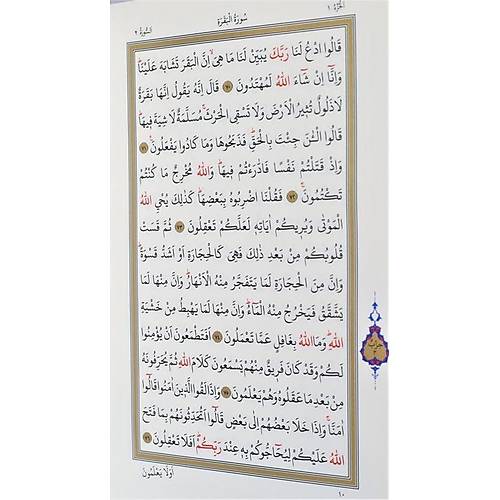 الجزء ١
سورة البقرة
السورة ٢
قَالُوا ادْعُ لَنَا رَبَّكَ يُبَيِّنْ لَنَا مَا هِيَ اِنَّ الْبَقَرَ تَشَابَهَ عَلَيْنَا
وَاِنَّا اِنْ شَاءَ اللّٰهُ لَمُهْتَدُونَ ﴿٧٠﴾ قَالَ اِنَّهُ يَقُولُ اِنَّهَا بَقَرَةٌ
لَا ذَلُولٌ تُثِيرُ الْاَرْضَ وَلَا تَسْقِي الْحَرْثَ مُسَلَّمَةٌ لَا شِيَةَ فِيهَا
قَالُوا الْـٰٔنَ جِئْتَ بِالْحَقِّ فَذَبَحُوهَا وَمَا كَادُوا يَفْعَلُونَ ﴿٧١﴾
وَاِذْ قَتَلْتُمْ نَفْسًا فَادّٰرَءْتُمْ فِيهَا وَاللّٰهُ مُخْرِجٌ مَا كُنْتُمْ
تَكْتُمُونَ ﴿٧٢﴾ فَقُلْنَا اضْرِبُوهُ بِبَعْضِهَا كَذٰلِكَ يُحْيِ اللّٰهُ
الْمَوْتٰى وَيُرِيكُمْ اٰيَاتِهِ لَعَلَّكُمْ تَعْقِلُونَ ﴿٧٣﴾ ثُمَّ قَسَتْ
قُلُوبُكُمْ مِنْ بَعْدِ ذٰلِكَ فَهِيَ كَالْحِجَارَةِ اَوْ اَشَدُّ قَسْوَةً
وَاِنَّ مِنَ الْحِجَارَةِ لَمَا يَتَفَجَّرُ مِنْهُ الْاَنْهَارُ وَاِنَّ مِنْهَا لَمَا
يَشَّقَّقُ فَيَخْرُجُ مِنْهُ الْمَاءُ وَاِنَّ مِنْهَا لَمَا يَهْبِطُ مِنْ خَشْيَةِ
اللّٰهِ وَمَا اللّٰهُ بِغَافِلٍ عَمَّا تَعْمَلُونَ ﴿٧٤﴾ اَفَتَطْمَعُونَ اَنْ يُؤْمِنُوا
لَكُمْ وَقَدْ كَانَ فَرِيقٌ مِنْهُمْ يَسْمَعُونَ كَلَامَ اللّٰهِ ثُمَّ يُحَرِّفُونَهُ
مِنْ بَعْدِ مَا عَقَلُوهُ وَهُمْ يَعْلَمُونَ ﴿٧٥﴾ وَاِذَا لَقُوا الَّذِينَ اٰمَنُوا قَالُوا
اٰمَنَّا وَاِذَا خَلَا بَعْضُهُمْ اِلٰى بَعْضٍ قَالُوا اَتُحَدِّثُونَهُمْ بِمَا فَتَحَ
اللّٰهُ عَلَيْكُمْ لِيُحَاجُّوكُمْ بِهِ عِنْدَ رَبِّكُمْ اَفَلَا تَعْقِلُونَ ﴿٧٦﴾
اَوَلَا يَعْلَمُونَ
١٠